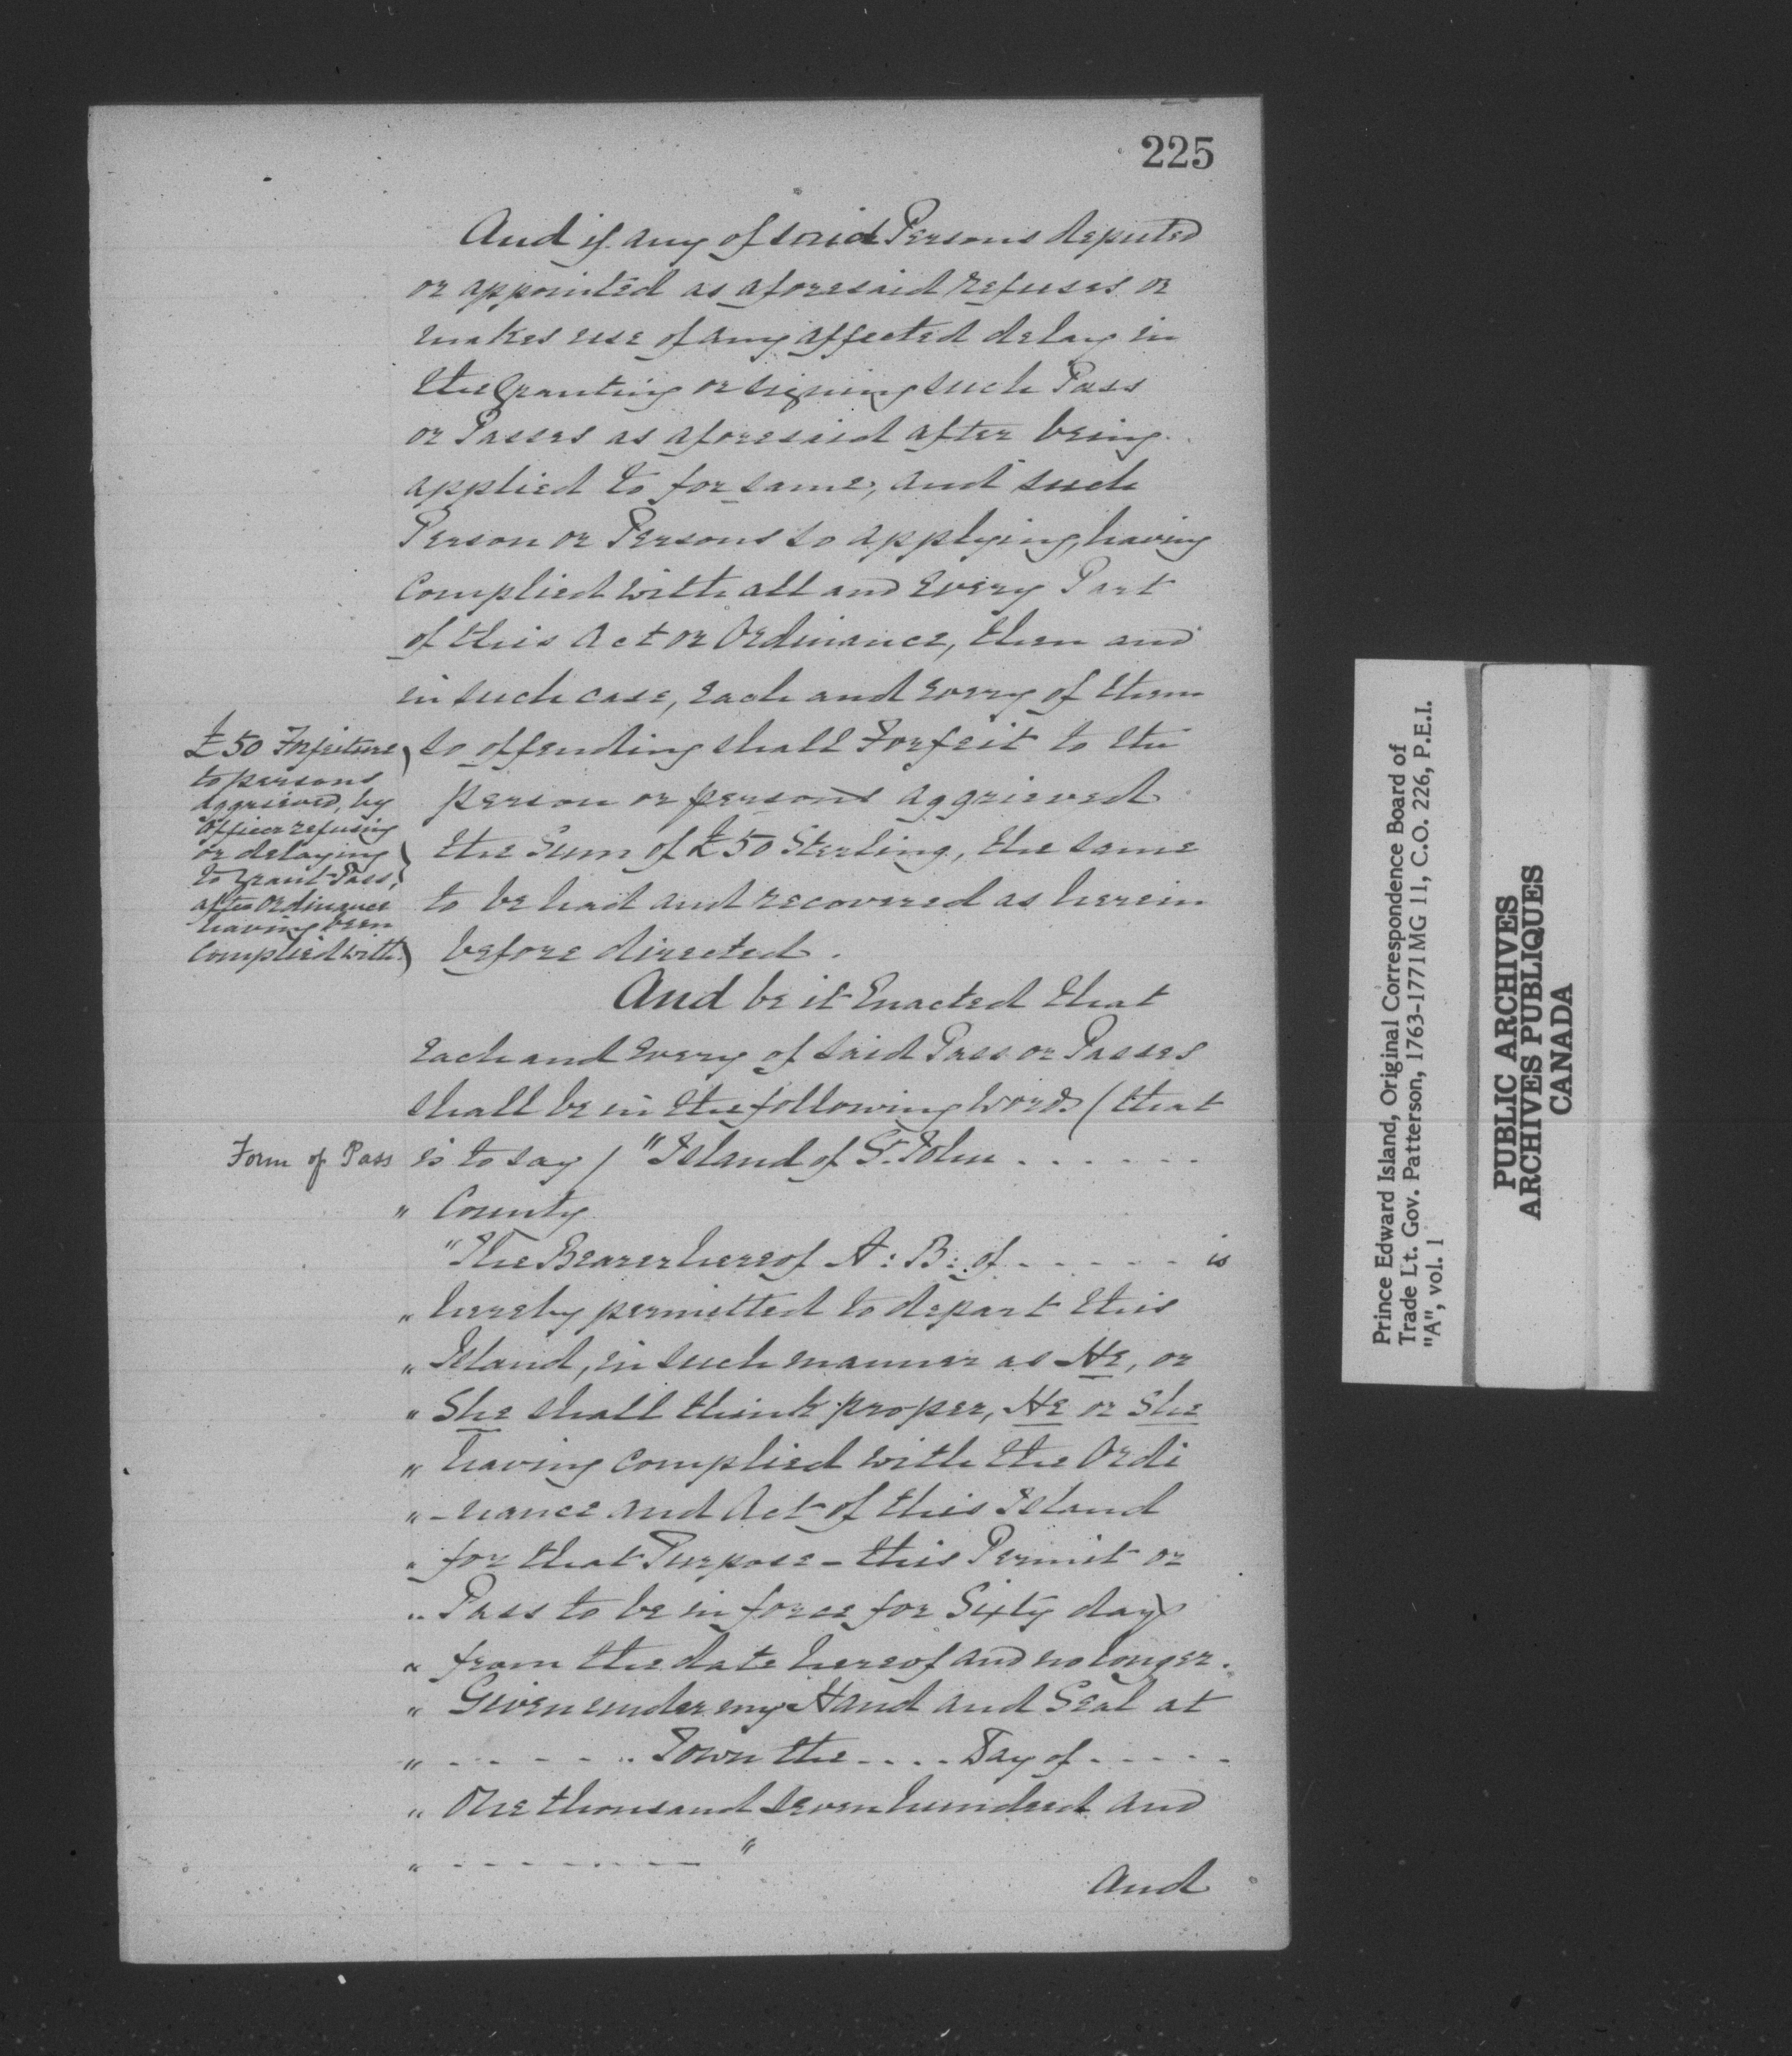 225
And if any of said Persons deputed
or appointed as aforesaid refuses or
makes use of any affected delay in
the Granting or signing such Pass
or Passes as aforesaid after being
applied to for same, and such
Person or Persons so applying, having
Complied with all and Every Part
of this Act or Ordinance, then and
in such case, each and every of them
so offending shall Forfeit to the
person or persons aggrieved
the Sum of £50 Sterling, the same
to be had and recovered as herein
before directed.
£50 Forfeiture
to persons
aggrieved, by
Officer refusing
or delaying
to grant Pass,
after Ordinance
having been
complied with.
And be it Enacted that
Each and Every of said Pass or Passes
shall be in the following Words (that
Form of Pass
is to say / "Island of St. John . . . . . .
" County
"The Bearer hereof A: B: of - - - - - - is
" hereby permitted to depart this
" Island, in such manner as He, or
" She shall think proper, He or She
" having complied with the Ordi
" -nance and Act of this Island
" for that Purpose - this Permit or
" Pass to be in force for Sixty days
" from the date hereof and no longer.
" Given under my Hand and Seal at
" - - - - - - Town the - - - - Day of - - - - -
" One thousand seven hundred and
" - - - - - - - - "
And
Prince Edward Island, Original Correspondence Board of
Trade Lt. Gov. Patterson, 1763-1771 MG 11, C.O. 226, P.E.I.
"A", vol. 1
PUBLIC ARCHIVES
ARCHIVES PUBLIQUES
CANADA